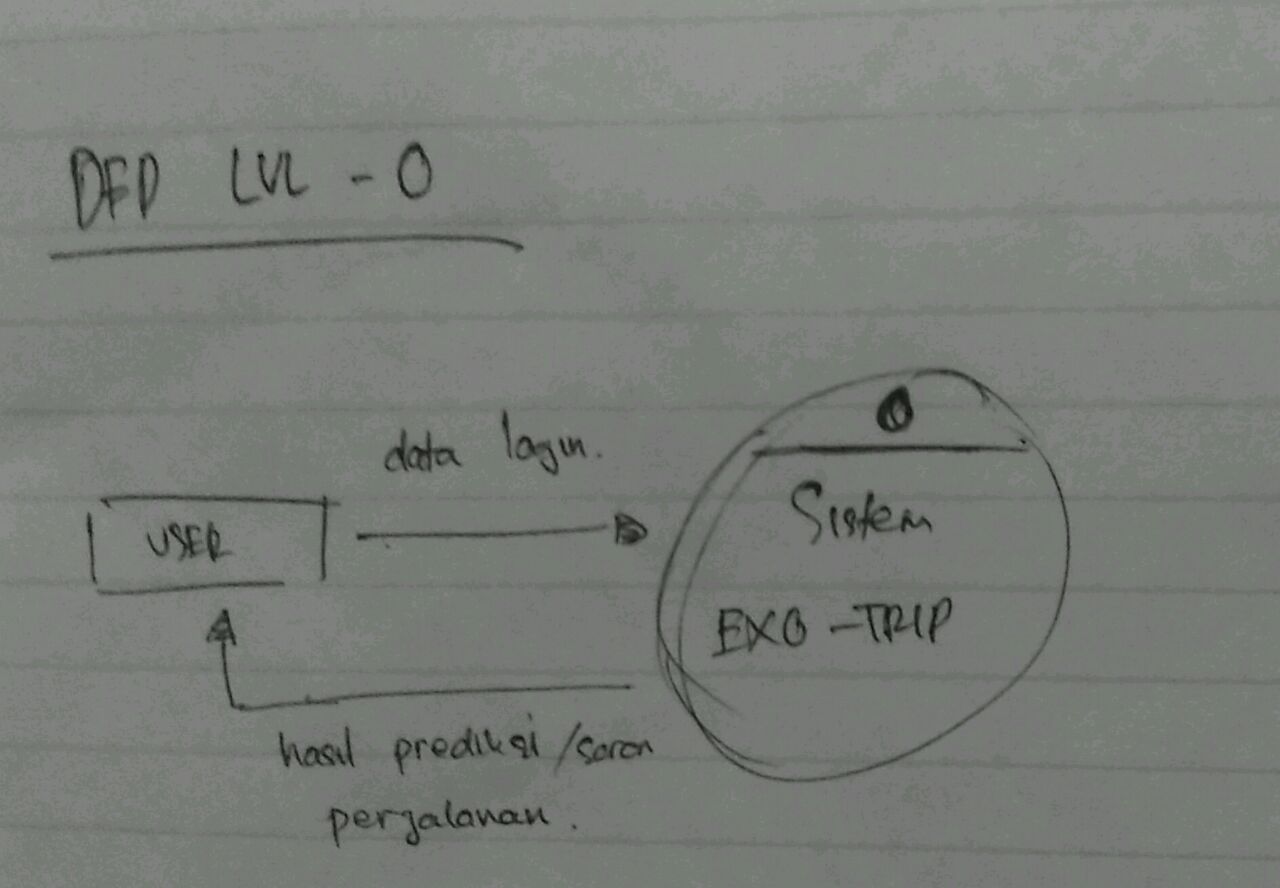 DFD LVL - 0
data login.
0
Sistem
USER
EXO - TRIP
hasil prediksi / saran
perjalanan.